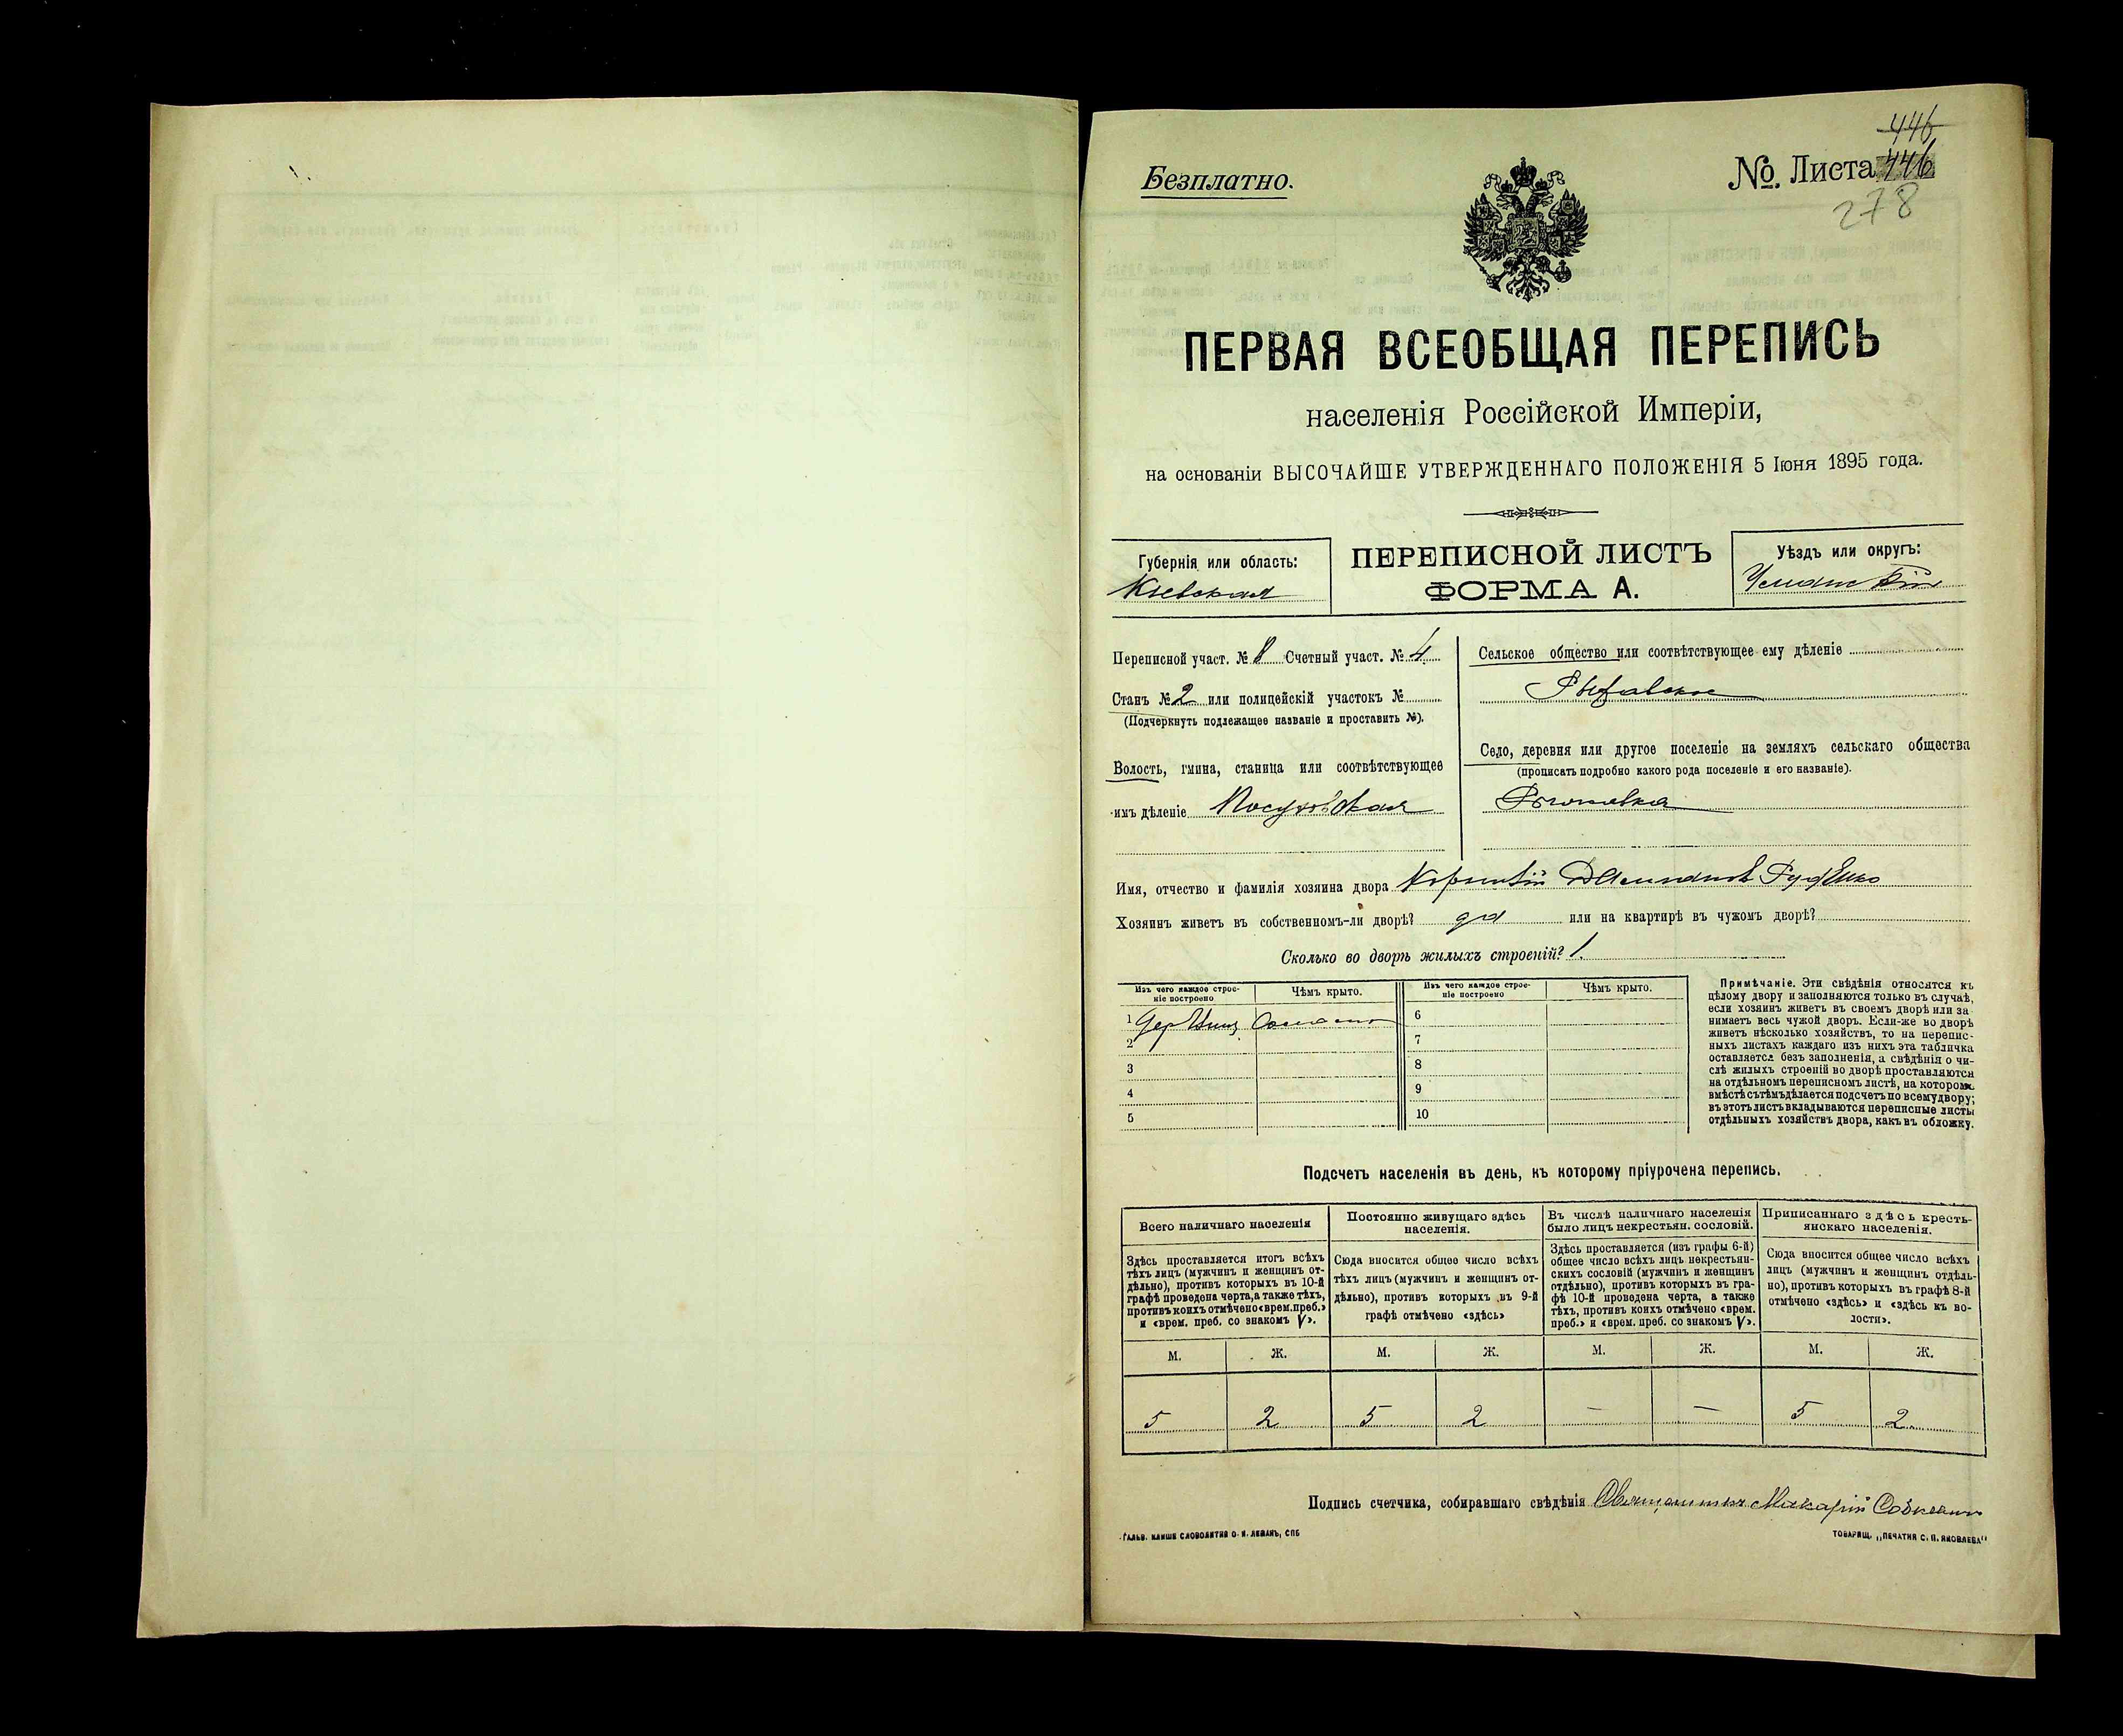 446
Безплатно.
№. Листа 446
278
ПЕРВАЯ ВСЕОБЩАЯ ПЕРЕПИСЬ
населенія Россійской Имперіи,
на основаніи ВЫСОЧАЙШЕ УТВЕРЖДЕННАГО ПОЛОЖЕНІЯ 5 Іюня 1895 года.
Губернія или область:
Кіевская
ПЕРЕПИСНОЙ ЛИСТЪ
ФОРМА А.
Уѣздъ или округъ:
Уманскій
Переписной участ. № 8 Счетный участ. № 4
Станъ № 2 или полицейскій участокъ №
(Подчеркнуть подлежащее названіе и проставить №).
Волость, гмина, станица или соотвѣтствующее
имъ дѣленіе
Сельское общество или соотвѣтствующее ему дѣленіе
Село, деревня или другое поселеніе на земляхъ сельскаго общества
(прописать подробно какого рода поселеніе и его названіе).
Имя, отчество и фамилія хозяина двора
Хозяинъ живетъ въ собственномъ-ли дворѣ? да или на квартирѣ въ чужомъ дворѣ?
Сколько во дворѣ жилыхъ строеній? 1.
Изъ чего каждое строе-
ніе построено
Чѣмъ крыто.
Изъ чего каждое строе-
ніе построено
Чѣмъ крыто.
1
2
3
4
5
6
7
8
9
10
Примѣчаніе. Эти свѣдѣнія относятся къ
цѣлому двору и заполняются только въ случаѣ,
если хозяинъ живетъ въ своемъ дворѣ или за-
нимаетъ весь чужой дворъ. Если-же во дворѣ
живетъ нѣсколько хозяйствъ, то на перепис-
ныхъ листахъ каждаго изъ нихъ эта табличка
оставляется безъ заполненія, а свѣдѣнія о чи-
слѣ жилыхъ строеній во дворѣ проставляются
на отдѣльномъ переписномъ листѣ, на которомъ
вмѣстѣ съ тѣмъ дѣлается подсчетъ по всему двору;
въ этотъ листъ вкладываются переписные листы
отдѣльныхъ хозяйствъ двора, какъ въ обложку.
Подсчетъ населенія въ день, къ которому пріурочена перепись.
Всего наличнаго населенія
Здѣсь проставляется итогъ всѣхъ
тѣхъ лицъ (мужчинъ и женщинъ от-
дѣльно), противъ которыхъ въ 10-й
графѣ проведена черта, а также тѣхъ,
противъ коихъ отмѣчено «врем. преб.»
и «врем. преб. со знакомъ V».
Постоянно живущаго здѣсь
населенія.
Сюда вносится общее число всѣхъ
тѣхъ лицъ (мужчинъ и женщинъ от-
дѣльно), противъ которыхъ въ 9-й
графѣ отмѣчено «здѣсь»
Въ числѣ наличнаго населенія
было лицъ некрестьян. сословій.
Здѣсь проставляется (изъ графы 6-й)
общее число всѣхъ лицъ некрестьян-
скихъ сословій (мужчинъ и женщинъ
отдѣльно), противъ которыхъ въ гра-
фѣ 10-й проведена черта, а также
тѣхъ, противъ коихъ отмѣчено «врем.
преб.» и «врем. преб. со знакомъ V».
Приписаннаго здѣсь кресть-
янскаго населенія.
Сюда вносится общее число всѣхъ
лицъ (мужчинъ и женщинъ отдѣль-
но), противъ которыхъ въ графѣ 8-й
отмѣчено «здѣсь» и «здѣсь къ во-
лости».
М. Ж. М. Ж. М. Ж. М. Ж.
5 2 5 2 — — 5 2
Подпись счетчика, собиравшаго свѣдѣнія Священникъ Макарій
ГАЛЬВ. КЛИШЕ СЛОВОЛИТНИ О. И. ЛЕМАНЪ, СПБ
ТОВАРИЩ. „ПЕЧАТНЯ С. П. ЯКОВЛЕВА"